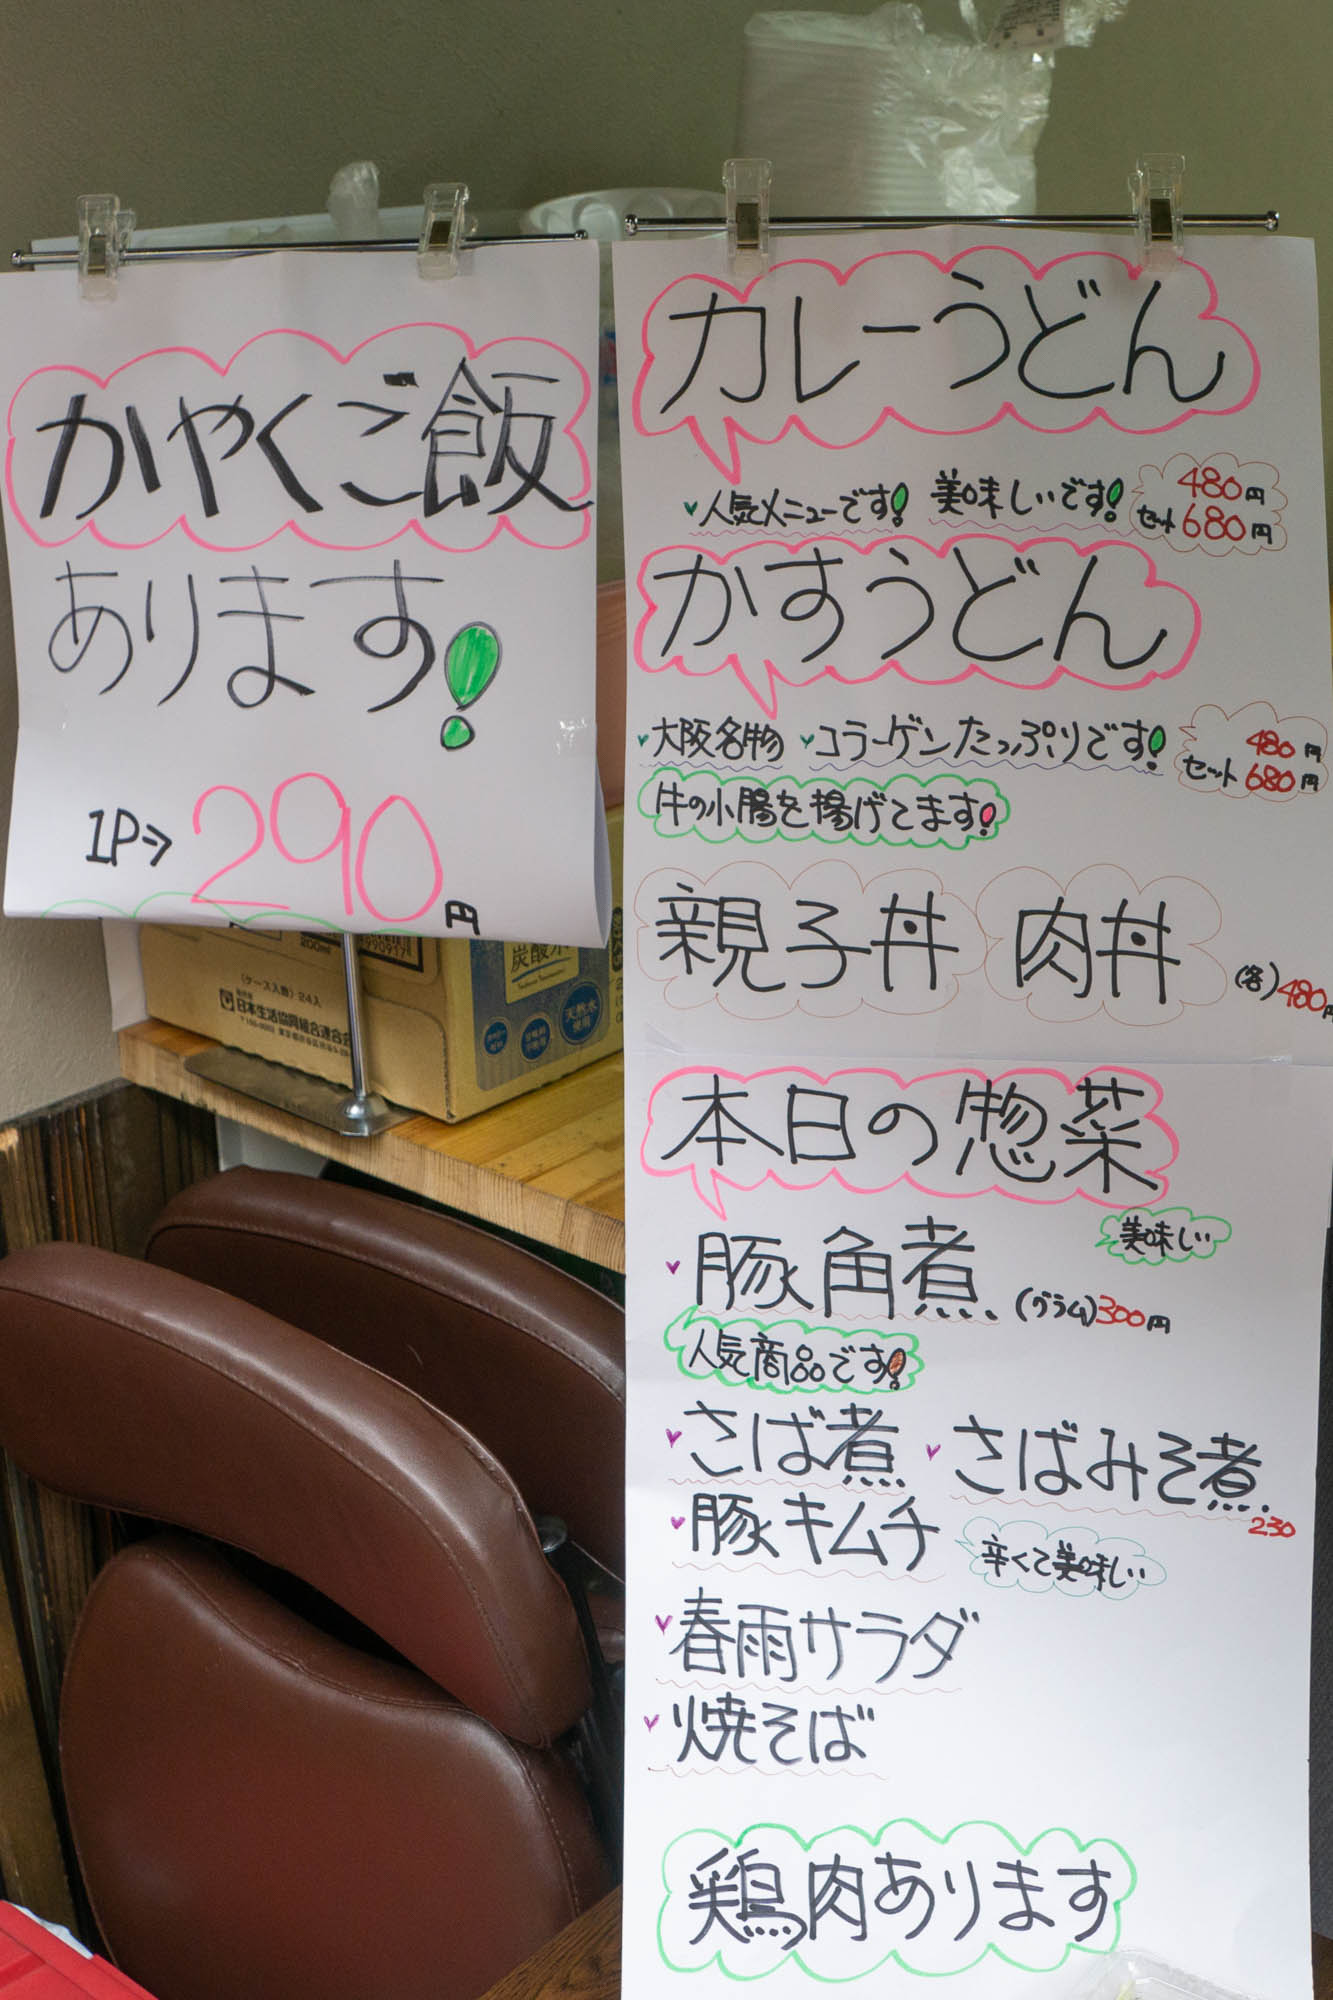 かやくご飯
あります!
1P⇒290円
カレーうどん
人気メニューです! 美味しいです!
480円
セット680円
かすうどん
大阪名物 コラーゲンたっぷりです!
480円
セット680円
牛の小腸を揚げてます!
親子丼 肉丼 (各)480円
本日の惣菜
美味しい
豚角煮 (グラム)300円
人気商品です!
さば煮 さばみそ煮
230
豚キムチ 辛くて美味しい
春雨サラダ
焼そば
鶏肉あります
200ml
炭酸水
(ケース入数):24入
日本生活協同組合連合会
天然水
使用